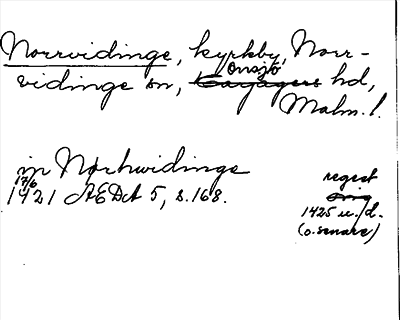 Norrvidinge, kyrkby, Norr-
vidinge sn, Onsjö hd,
Malm. l.
in Nørhwidinge
17/6
1421 ÆDA 5, s. 168.
regest
orig
1425 u. d.
(o. senare)